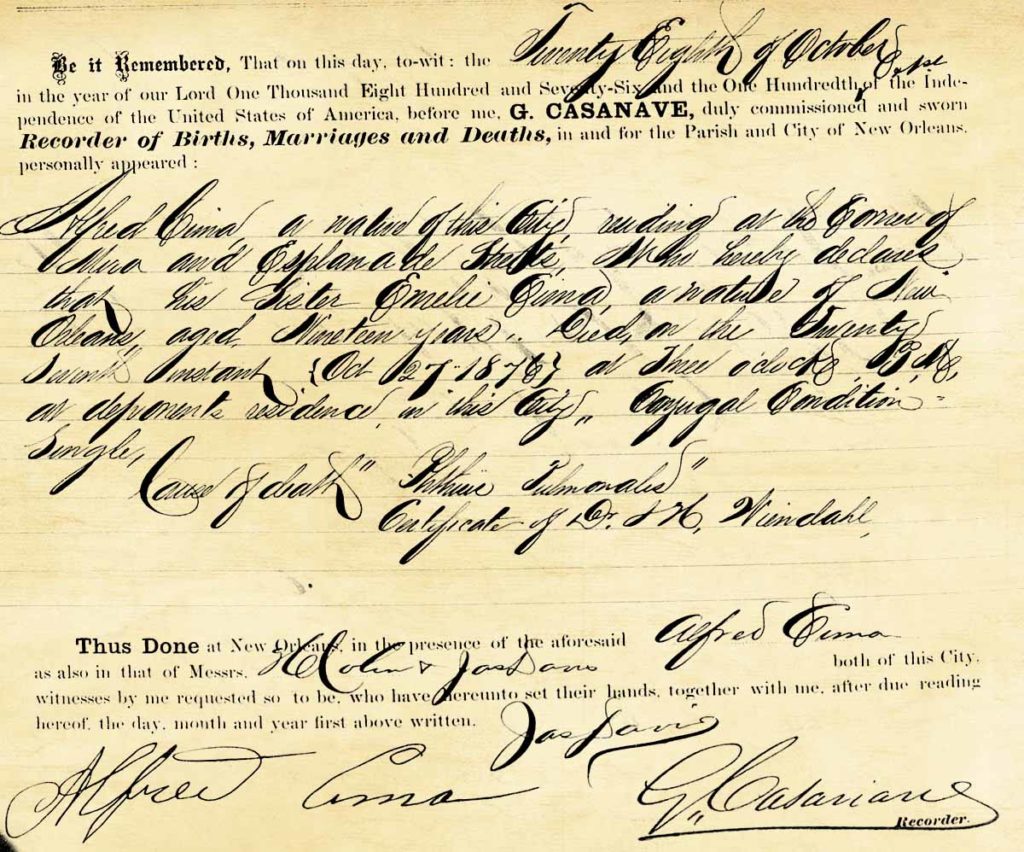 Be it Remembered, That on this day, to-wit: the Twenty Eighth of October
in the year of our Lord One Thousand Eight Hundred and Seventy-Six and the One Hundredth of the Inde-
pendence of the United States of America, before me, G. CASANAVE, duly commissioned and sworn
Recorder of Births, Marriages and Deaths, in and for the Parish and City of New Orleans,
personally appeared:
Alfred Cima, a native of this City, residing at the Corner of
Miro and Esplanade Streets, Who hereby declares
that his Sister Emelie Cima, a native of New
Orleans, aged Nineteen years, Died, on the Twenty
Seventh instant (Oct 27-1876) at Three o'clock P.M.
at deponents residence, in this City, Conjugal Condition-
Single,
Cause of death "Phthisie Pulmonalis"
Certificate of Dr.
Thus Done at New Orleans, in the presence of the aforesaid Alfred Cima
as also in that of Messrs. & Jas Davis both of this City,
witnesses by me requested so to be, who have hereunto set their hands, together with me, after due reading
hereof, the day, month and year first above written.
Jas Davis
Alfred Cima
G. Casanave
Recorder.